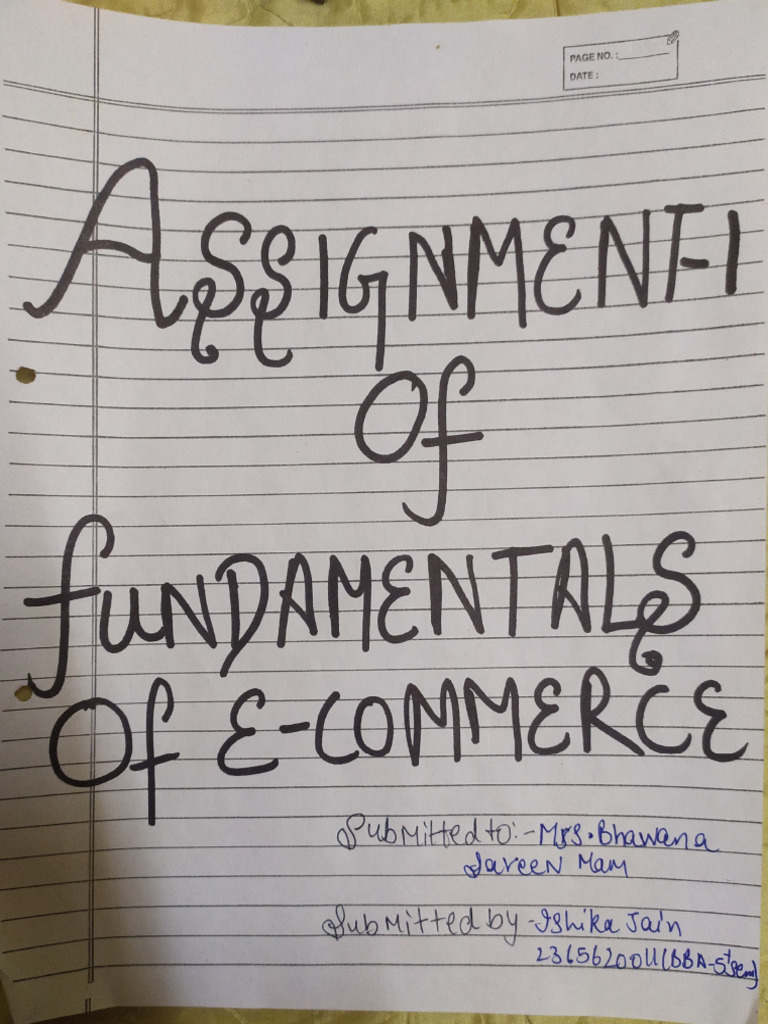 PAGE NO. :
DATE :
ASSIGNMENT-1
Of
fUNDAMENTALS
Of E-COMMERCE
Submitted to:- Mrs. Bhawana
Sareen Mam
Submitted by - Ishika Jain
(BBA-5th Sem)